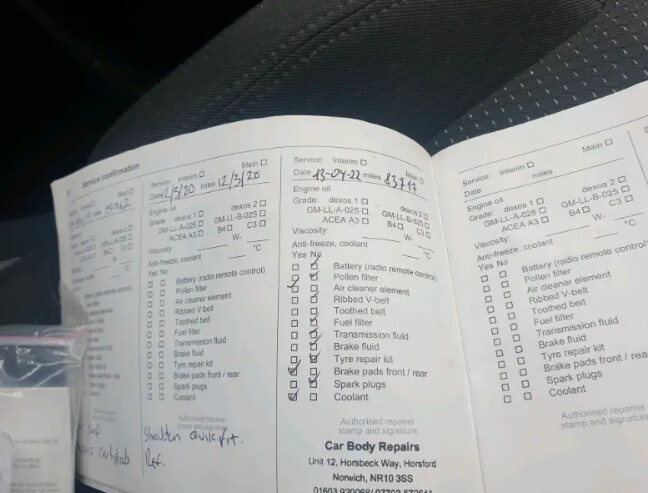 Service confirmation
Main
Service: Interim Main
Date 12/3/20 miles 12/3/20
Engine oil
Grade: dexos 1 dexos 2
GM-LL-A-025 GM-LL-B-025
ACEA A3 B4 C3
Viscosity: W- °C
Anti-freeze, coolant
Yes No
Battery (radio remote control)
Pollen filter
Air cleaner element
Ribbed V-belt
Toothed belt
Fuel filter
Transmission fluid
Brake fluid
Tyre repair kit
Brake pads front / rear
Spark plugs
Coolant
Authorised repairer
stamp and signature
Service: Interim Main
Date 13-04-22 miles 83717
Engine oil
Grade: dexos 1 dexos 2
GM-LL-A-025 GM-LL-B-025
ACEA A3 B4 C3
Viscosity: W- °C
Anti-freeze, coolant
Yes No
Battery (radio remote control)
Pollen filter
Air cleaner element
Ribbed V-belt
Toothed belt
Fuel filter
Transmission fluid
Brake fluid
Tyre repair kit
Brake pads front / rear
Spark plugs
Coolant
Authorised repairer
stamp and signature
Car Body Repairs
Unit 12, Horsbeck Way, Horsford
Norwich, NR10 3SS
Service: Interim Main
Date miles
Engine oil
Grade: dexos 1 dexos 2
GM-LL-A-025 GM-LL-B-025
ACEA A3 B4 C3
Viscosity: W- °C
Anti-freeze, coolant
Yes No
Battery (radio remote control)
Pollen filter
Air cleaner element
Ribbed V-belt
Toothed belt
Fuel filter
Transmission fluid
Brake fluid
Tyre repair kit
Brake pads front / rear
Spark plugs
Coolant
Authorised repairer
stamp and signature